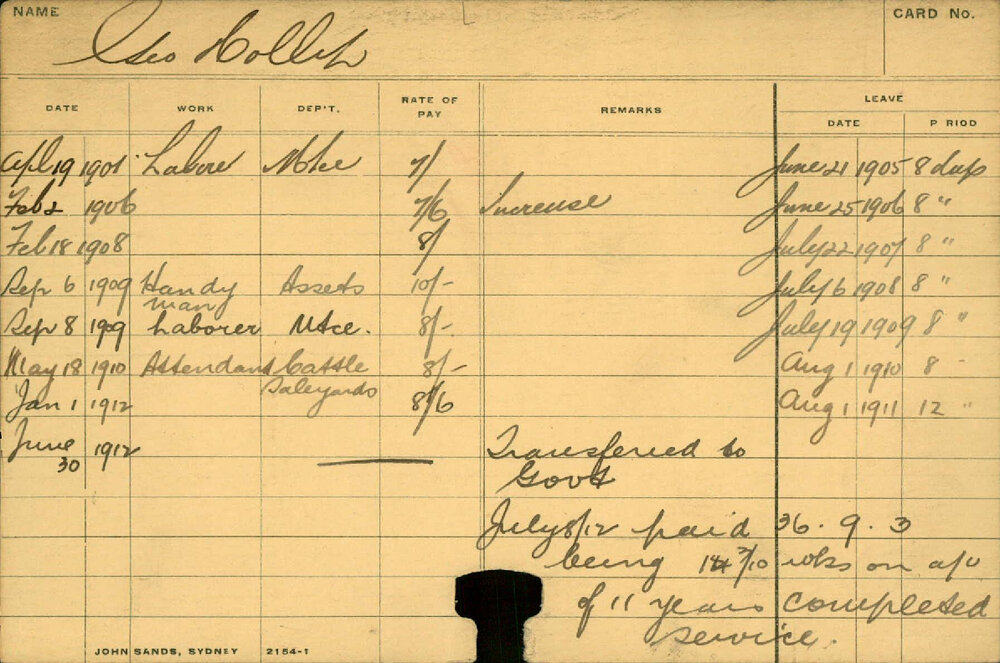 NAME
CARD No.
Geo Hollip
DATE WORK DEP'T. RATE OF PAY REMARKS LEAVE
DATE P RIOD
Apl 19 1901 Labore Mtce 7/ June 21 1905 8 days
Feb 2 1906 7/6 Increase June 25 1906 8 "
Feb 18 1908 8/ July 22 1907 8 "
Sep 6 1909 Handy Assets 10/- July 6 1908 8 "
man
Sep 8 1909 Laborer Mtce. 8/- July 19 1909 8 "
May 18 1910 Attendant Cattle 8/- Aug 1 1910 8 "
Saleyards
Jan 1 1912 8/6 Aug 1 1911 12 "
June
30 1912 Transferred to
Govt
July 8/12 paid 36. 9. 3
being 14 3/10 wks on a/c
of 11 years completed
service.
JOHN SANDS, SYDNEY 2154-1